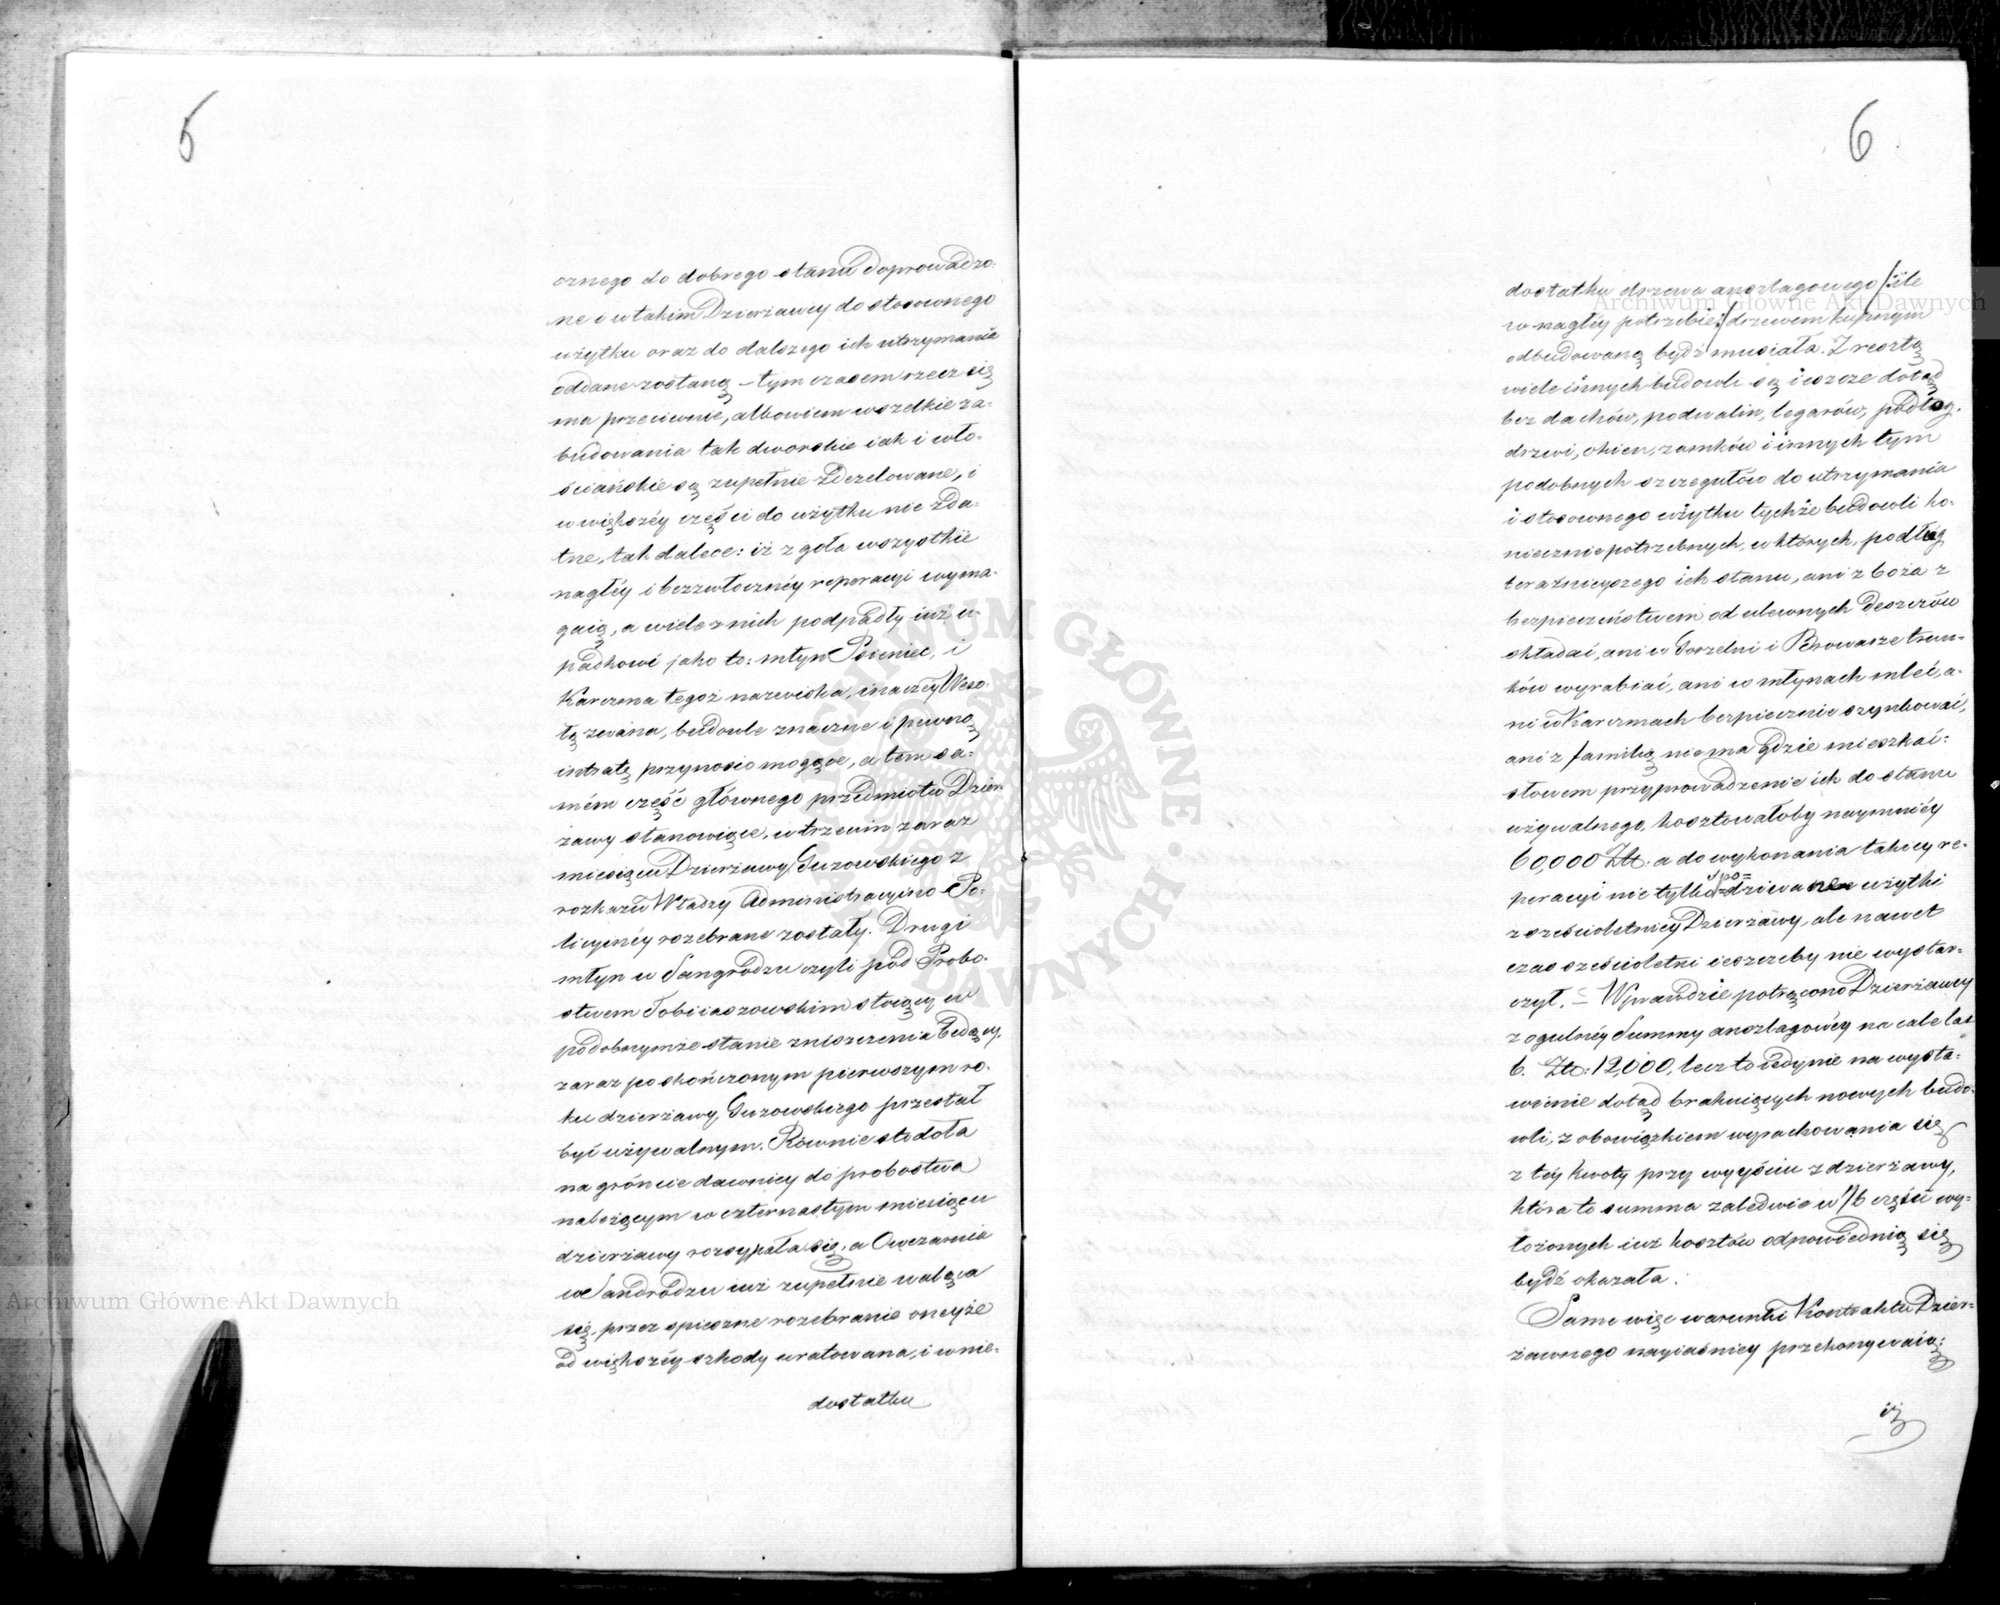 5
cznego do dobrego stanu doprowadzo-
ne i w takim Dzierzawcy do stosownego
użytku oraz do dalszego ich utrzymania
oddane zostaną – tym czasem rzecz się
ma przeciwnie, albowiem wszelkie za-
budowania tak dworskie iak i wło-
ściańskie są zupełnie zdezelowane, i
w większéy części do użytku nie zda-
tne, tak dalece: iż zgoła wszystkie
nagłéy i bezzwłocznéy reperacyi wyma-
gaią, a wiele z nich podpadły iuż u-
padkowi jako to: młyn Psieniec, i
Karczma tegoż nazwiska, inaczey Weso-
łą zwana, budowle znaczne i pewną
intratę przynosić mogące, a tem sa-
mém część głównego przedmiotu Dzier-
zawy stanowiące, w trzecim zaraz
miesiącu Dzierzawy Guzowskiego z
rozkazu Władzy Administracyino-Po-
licyinéy rozebrane zostały. Drugi
młyn w Sangrodzu czyli pod Probo-
stwem Tobiiaszowskim stoiący w
podobnymże stanie zniszczenia będący,
zaraz po skończonym pierwszym ro-
ku dzierżawy Guzowskiego przestał
być używalnym. Równie stodoła
na gróncie dawniey do probostwa
należącym w czternastym miesiącu
dzierżawy rozsypała się, a Owczarnia
w Sandrodzu iuż zupełnie waląca
się, przez spieszne rozebranie oneyże
od większéy szkody uratowana, i w nie-
dostatku
6
dostatku drzewa anszlagowego /: ile
w nagłéy potrzebie :/ drzewem kupnym
odbudowaną bydź musiała. Z resztą
wiele innych budowli są ieszcze dotąd
bez dachów, podwalin, legarów, podłóg,
drzwi, okien, zamków i innych tym
podobnych szczegułów do utrzymania
i stosownego użytku tychże budowli ko-
niecznie potrzebnych, w których, podług
teraźnieyszego ich stanu, ani zboża z
bezpieczeństwem od ulewnych deszczów
składać, ani w Gorzelni i Browarze trun-
ków wyrabiać, ani w młynach mleć, a-
ni w Karczmach bezpiecznie szynkować,
ani z familią nie ma gdzie mieszkać:
słowem przyprowadzenie ich do stanu
używalnego, kosztowałoby naymniéy
60,000 Złt. a do wykonania takiey re-
peracyi nie tylko spo=dziwane użytki
z sześcioletniey Dzierzawy, ale nawet
czas sześcioletni ieszczeby nie wystar-
czył. – Wprawdzie potrącono Dzierzawcy
z ogulnéy Summy anszlagowéy na całe lat
6. Złt: 12,000, lecz to iedynie na wysta-
wienie dotąd brakuiących nowych budo-
wli, z obowiązkiem wyrachowania się
z téy kwoty przy wyyściu z dzierżawy,
która to summa zaledwie w 1/6 części wy-
łożonych iuż kosztów odpowiednią się
bydź okazała.
Same więc warunki Kontraktu Dzier-
żawnego nayiaśniey przekonywaią:
iż
Archiwum Główne Akt Dawnych
Archiwum Główne Akt Dawnych
ARCHIWUM GŁÓWNE AKT DAWNYCH